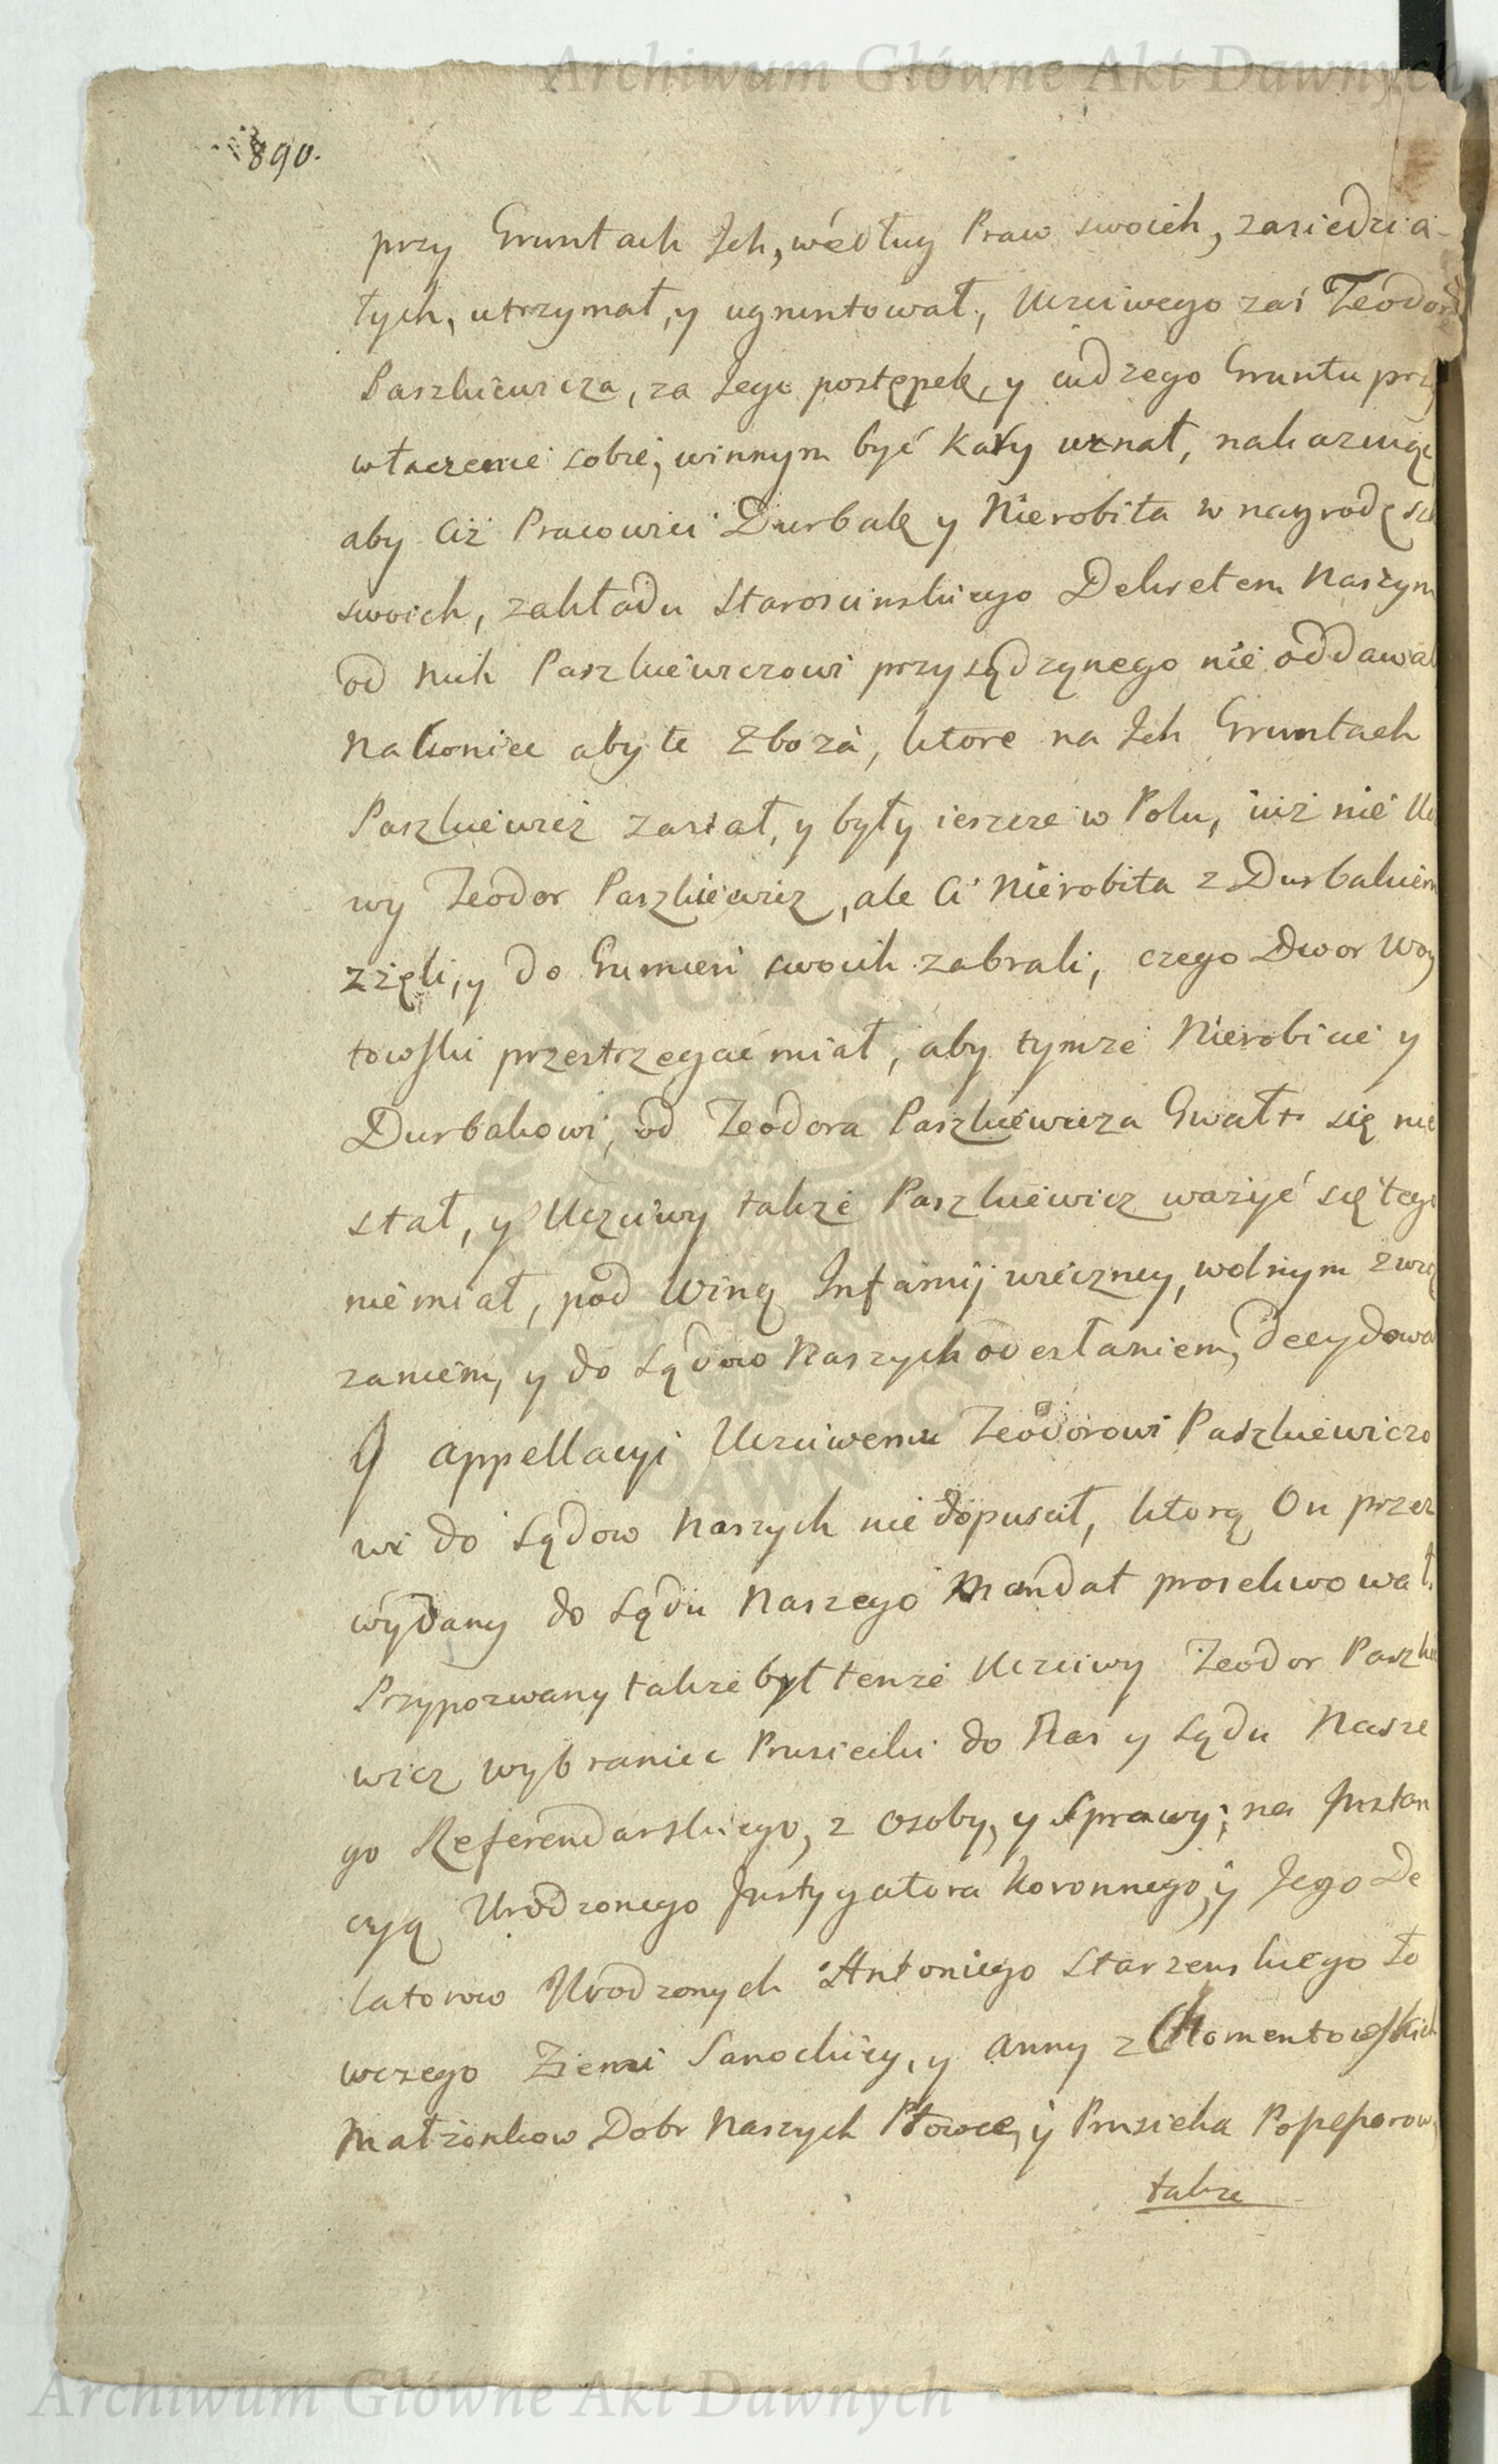 Archiwum Główne Akt Dawnych
890.
przy Gruntach Jch, wédług Praw swoich, zasiedzia-
łych, utrzymał, y ugruntował, Uczciwego zaś Teodor
Paszkiewicza, za Jego postępek, y cudzego Gruntu przy
właszczenie sobie, winnym być Kary uznał, nakazuiąc
aby Ciż Pracowici Durbak y Nierobiła w nagrodę
swoich, zakładu Starościnskiego Dekretem Naszym
od nich Paszkiewiczowi przysądzonego nie oddawal
Nakoniec aby te Zboża, ktore na Jch Gruntach
Paszkiewicz zasiał, y były ieszcze w Polu, iuż nie Uc
wy Teodor Paszkiewicz, ale Ci Nierobiła z Durbakiem
zżęli, y do Gumien swoich zabrali, czego Dwor Woy
towski przestrzegać miał, aby tymże Nierobile y
Durbakowi, od Teodora Paszkiewicza Gwałt się nie
stał, y Uczciwy także Paszkiewicz ważyć się tego
nie miał, pod Winą Jnfamij wieczney, wolnym zwią
zaniem, y do Sądow Naszych odesłaniem, decydowa
Y appellacyi Uczciwemu Teodorowi Paszkiewiczo
wi do Sądow Naszych nie dopuscił, ktorą On przez
wydany do Sądu Naszego Mandat prosekwował.
Przypozwany także był tenże Uczciwy Teodor Paszkie
wicz wybraniec Prusiecki do Nas y Sądu Nasze
go Referendarskiego, z osoby, y Sprawy; na Jnstan
cyą Urodzonego Jnstygatora Koronnego, y Jego De
latorow Urodzonych Antoniego Starzenskiego Ło
wczego Ziemi Sanockiey, y Anny z Chomentowskich
Małżonkow Dobr Naszych Płowce, y Prusieka Possessorow,
także
Archiwum Główne Akt Dawnych